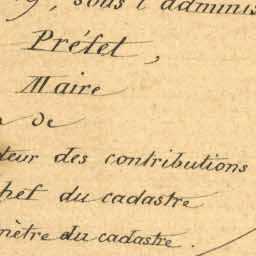 sous l'adminis
Préfet,
Maire
de
teur des contributions
hef du cadastre
mètre du cadastre.